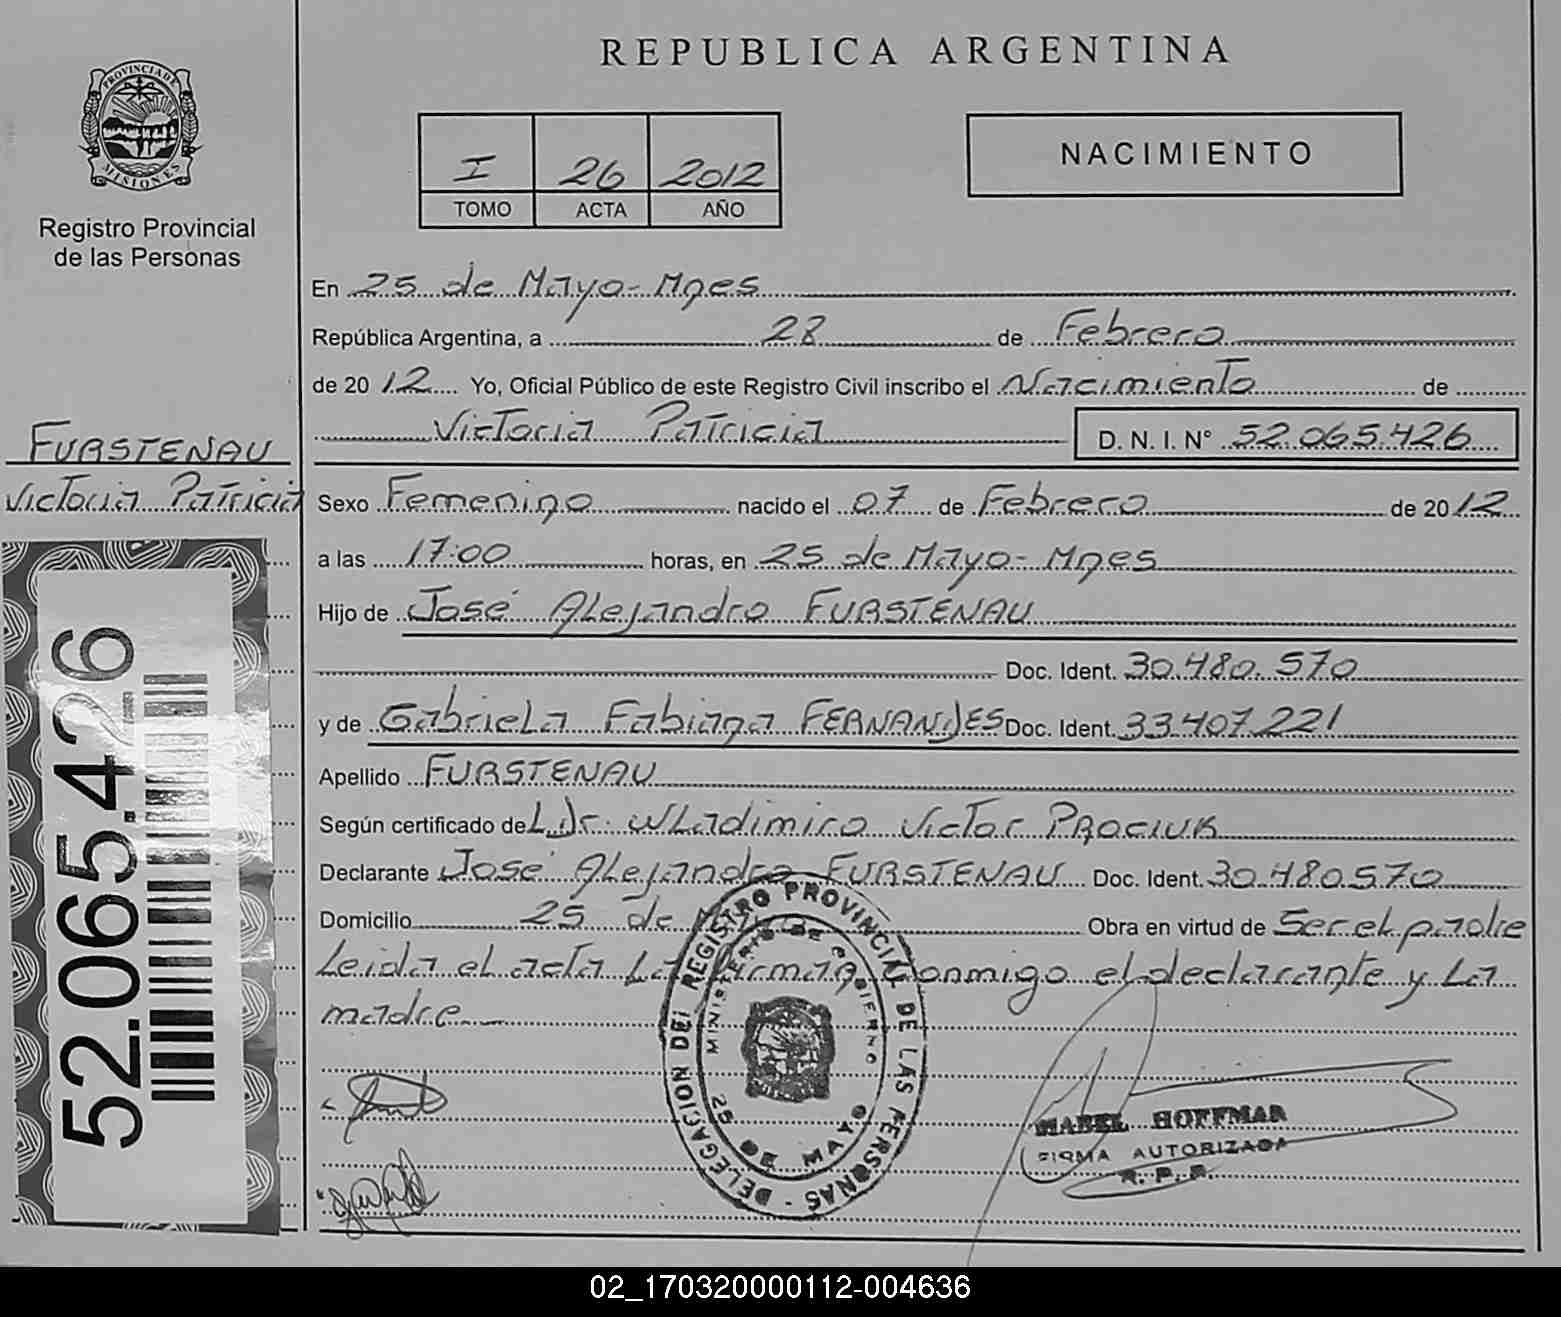 REPUBLICA ARGENTINA
PROVINCIA DE
MISIONES
Registro Provincial
de las Personas
I 26 2012
TOMO ACTA AÑO
NACIMIENTO
En 25 de Mayo-Mnes
República Argentina, a 28 de Febrero
de 2012 Yo, Oficial Público de este Registro Civil inscribo el Nacimiento de
Victoria Patricia D. N. I. N° 52.065.426
FURSTENAU
Victoria Patricia
Sexo Femenino nacido el 07 de Febrero de 2012
a las 17:00 horas, en 25 de Mayo-Mnes
Hijo de José Alejandro FURSTENAU
Doc. Ident. 30.480.570
y de Gabriela Fabiana FERNANDES Doc. Ident. 33.407.221
Apellido FURSTENAU
Según certificado del Dr. Wladimiro Victor PROCIUK
Declarante José Alejandro FURSTENAU Doc. Ident. 30.480.570
Domicilio 25 de Obra en virtud de Ser el padre
Leida el acta La Firman Conmigo el declarante y La
madre
52.065.426
DELEGACION DEL REGISTRO PROVINCIAL DE LAS PERSONAS -
MINISTERIO DE GOBIERNO
25 DE MAYO
MABEL HOFFMAN
FIRMA AUTORIZADA
R. P. P.
02_170320000112-004636